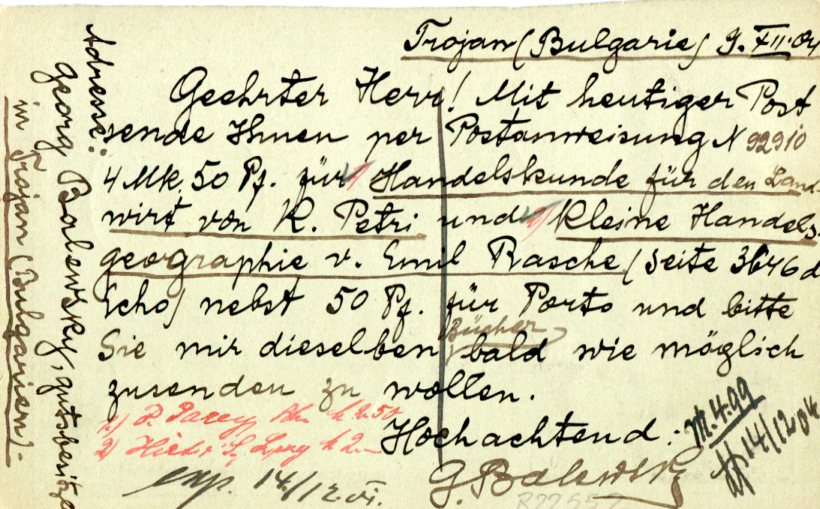 Trojan (Bulgarie) 9. XII. 04
Geehrter Herr! Mit heutiger Post
sende Ihnen per Postanweisung N 92910
4 Mk. 50 Pf. für 1) Handelskunde für den Land-
wirt von K. Petri und 2) Kleine Handels-
geographie v. Emil Rasche (Seite 3646 d
Echo) nebst 50 Pf. für Porto und bitte
Bücher
Sie mir dieselben bald wie möglich
zusenden zu wollen.
Hochachtend:
G. Balewsky
Adresse:
Georg Balewsky, gutsbesitzer
in Trojan (Bulgarien).
1.) P. Parey Bln 2.50
2) Hirt & S. Lpzg 2.—
M. 4.99
14/12 04
exp. 14/12. VI.